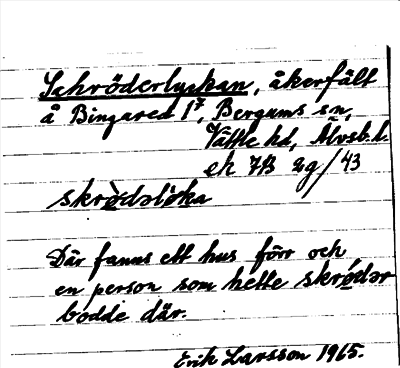 Schröderlyckan, åkerfält
å Bingared 1⁷, Bergums sn,
Vättle hd, Älvsb. l.
ek 7B 2g/43
skrò̀dəlø̀ka
Där fanns ett hus förr och
en person som hette skrǿdər
bodde där.
Erik Larsson 1965.